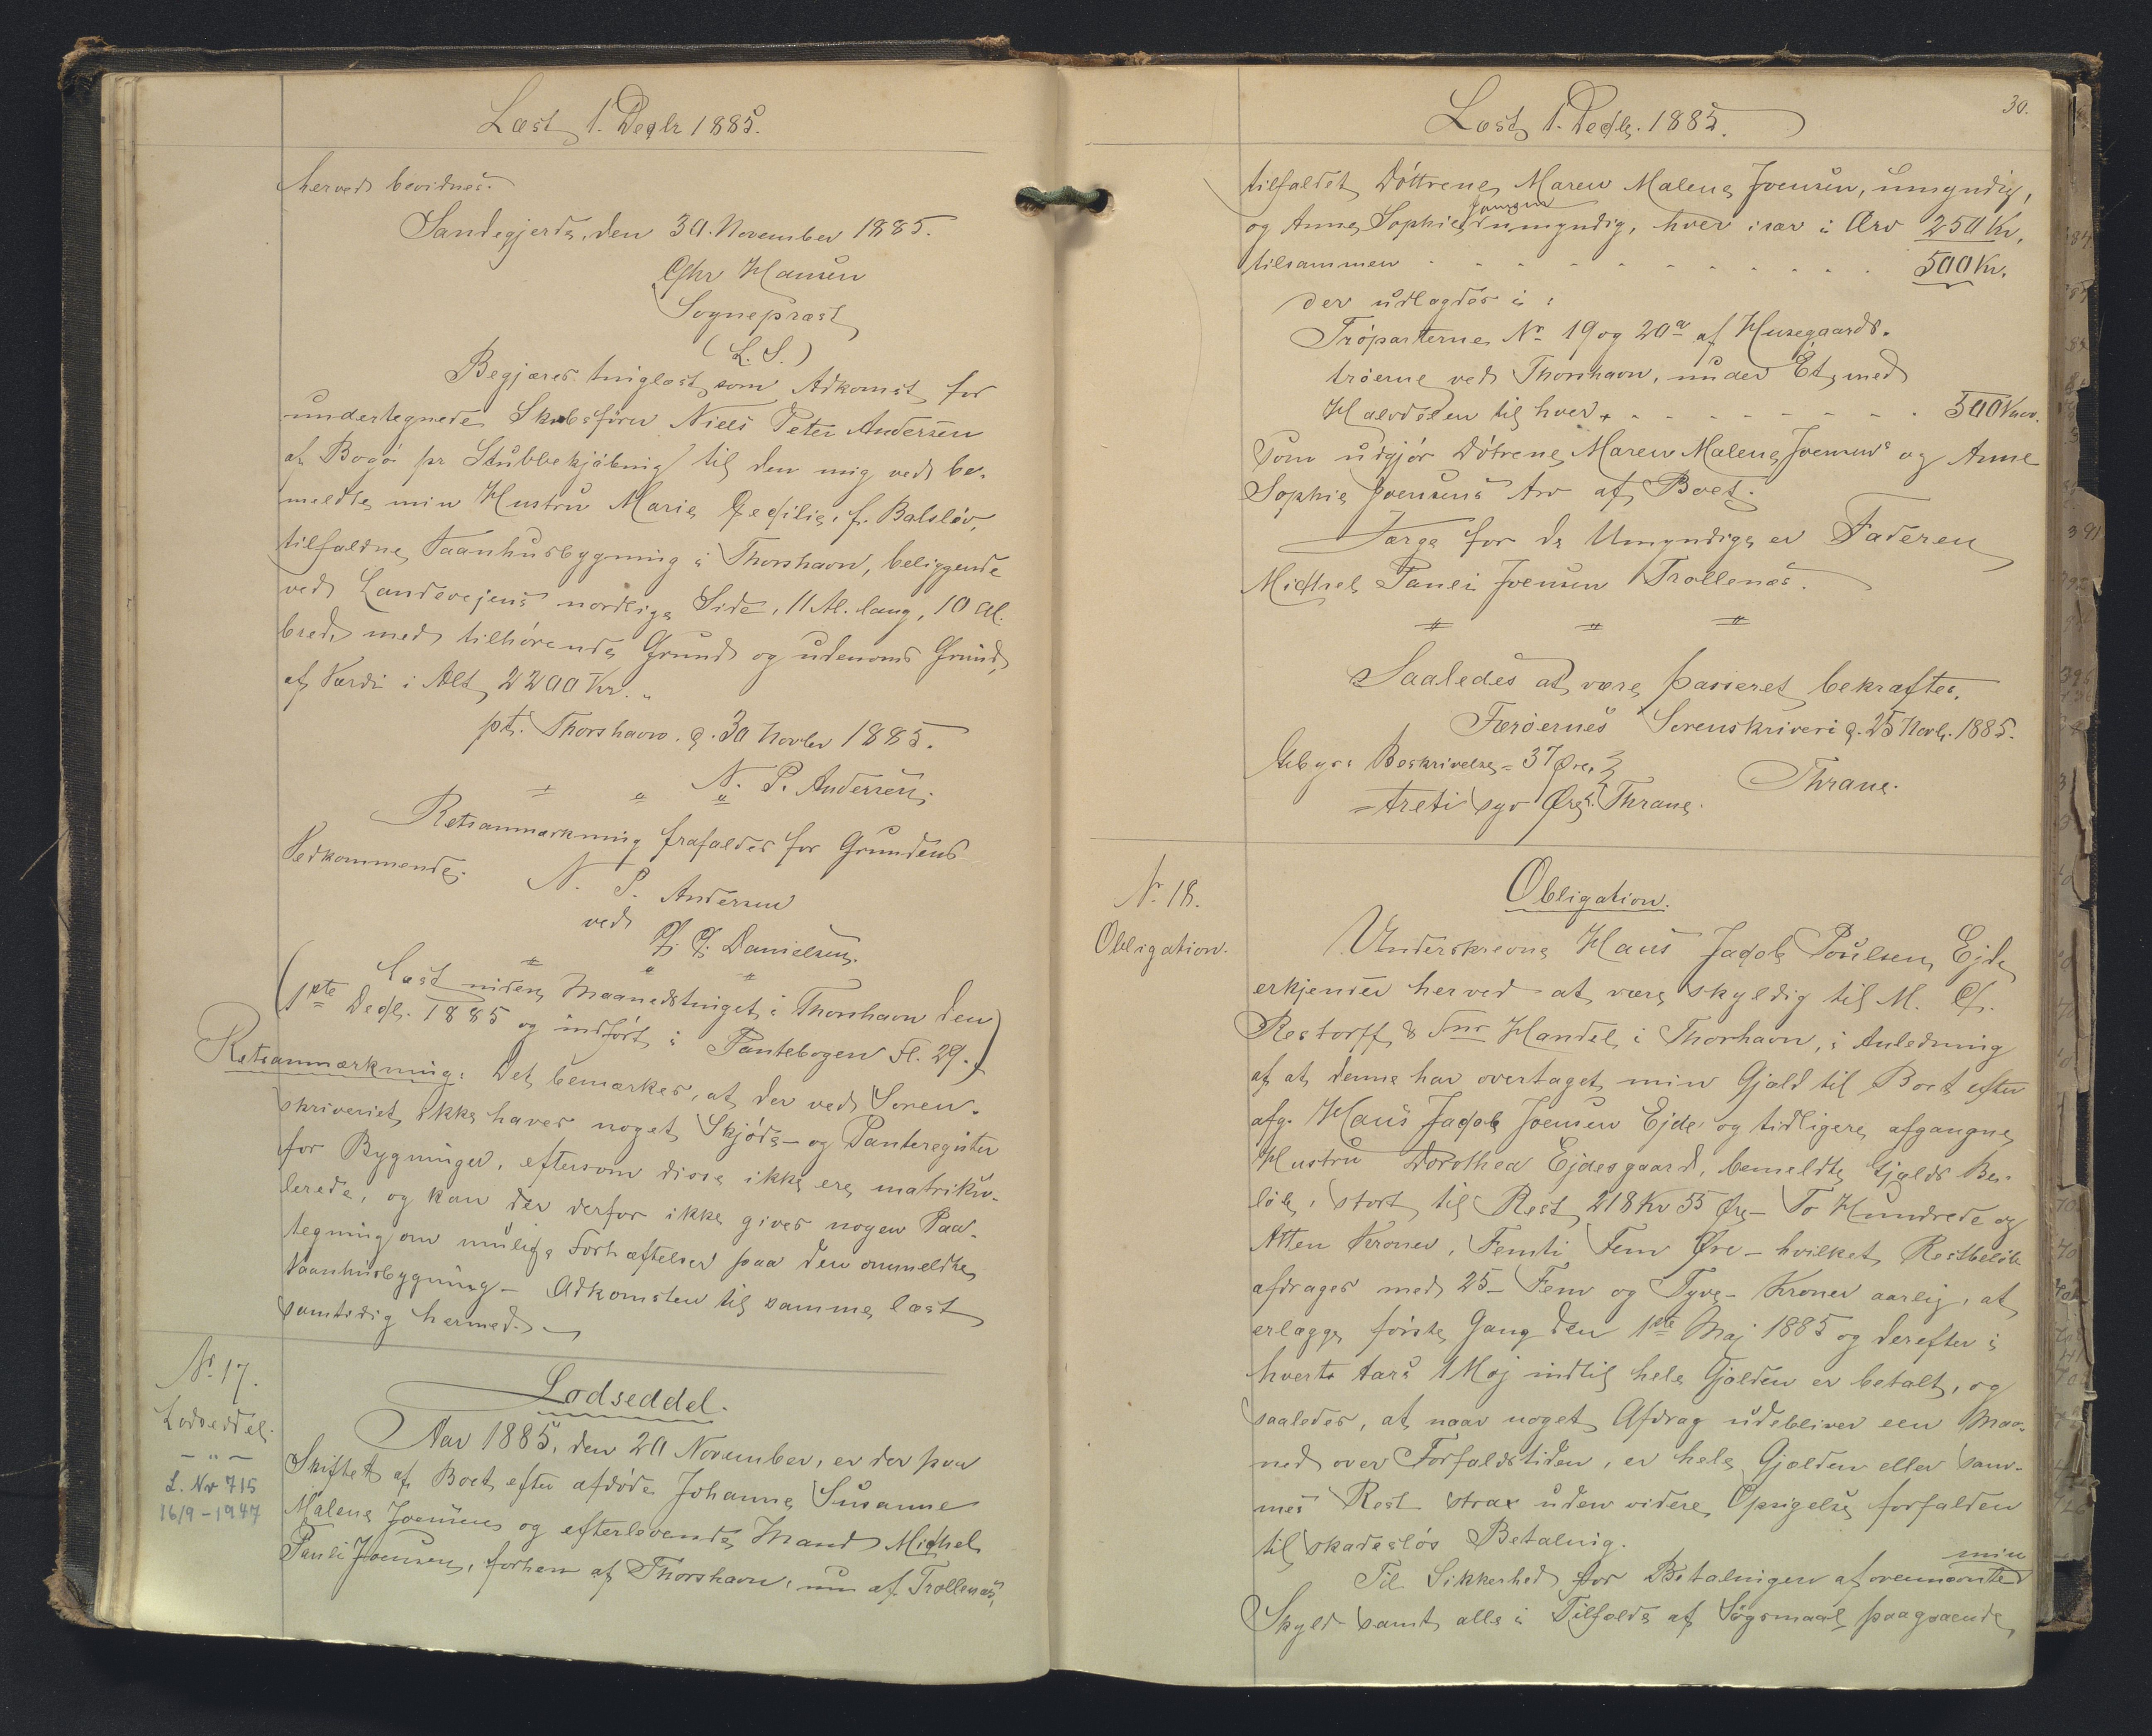 Læst 1. Decbr 1885.
herved bevidnes.
Sandegjerde, den 30. November 1885.
Chr Hansen
Sognepræst
(L. S.)
Begjæres tinglæst som Adkomst for
undertegnede Skibsfører Niels Peter Andersen
af Bogø pr Stubbekjøbing til den mig ved be-
meldte min Hustru Marie Cecilie, f. Balslöv,
tilfaldne Vaanhusbygning i Thorshavn, beliggende
ved Landevejens nordlige Side, 11 Al. lang, 10 Al.
bred, med tilhörende Grund og udenoms Grund,
af Værdi i Alt 2200 Kr. "
pt. Thorshavn. d. 30 Novbr 1885.
N. P. Andersen.
Retsanmærkning frafaldes for Grundens
Vedkommende.
N. P. Andersen
ved
J. C. Danielsen.
(Læst inden Maanedstinget i Thorshavn den
1ste Decb. 1885 og indfört i Pantebogen Fl. 29.)
Retsanmærkning: Det bemærkes, at der ved Soren-
skriveriet ikke haves noget Skjöde- og Panteregister
for Bygninger, eftersom disse ikke ere matriku-
lerede, og kan der derfor ikke gives nogen Paa-
tegning om mulige Forhæftelser paa den ommeldte
Vaanhusbygning - Adkomsten til samme læst
samtidig hermed.
No 17.
Lodseddel.
- " -
L. Nr 715
16/9 - 1947
Lodseddel.
Aar 1885, den 20 November, er der paa
Skiftet af Boet efter afdöde Johanne Susanne
Malene Joensen og efterlevende Mand Michel
Pauli Joensen, forhen af Thorshavn, nu af Trollenæs,
30.
Læst 1. Decbr. 1885.
tilfaldet Döttrene Maren Malene Joensen, umyndig,
Joensen
og Anne Sophie umyndig, hver især i Arv 250 Kr,
tilsammen 500 Kr.
der udlagdes i:
Tröparterne No 19 og 20a af Husegaards-
tröerne ved Thorshavn, under Ét, med
Halvdelen til hver 500 Kroner.
Som udgjör Dötrene Maren Malene Joensens og Anne
Sophie Joensens Arv af Boet.
Værge for de Umyndige er Faderen
Michel Pauli Joensen Trollenæs.
Saaledes at være passeret bekræftes.
Færöernes Sorenskriveri d. 25 Novb. 1885.
Gebyr: Beskrivelse = 37 Øre,
Thrane.
= treti syv Öre. Thrane.
No 18.
Obligation.
Obligation.
Underskrevne Hans Jacob Poulsen, Ejde
erkjender herved at være skyldig til M. C.
Restorff & Sns Handel i Thorhavn, i Anledning
af at denne har overtaget min Gjæld til Boet efter
afg. Hans Jacob Joensen Ejde og tidligere afgangne
Hustru Dorothea Ejdesgaard, bemeldte Gjælds Be-
löb, stort til Rest 218 Kr 55 Øre - To Hundrede og
Atten Kroner, Femti Fem Øre - hvilket Restbelöb
afdrages med 25 - Fem og Tyve - Kroner aarlig, at
erlægge förste Gang den 1ste Maj 1885 og derefter i
hverte Aars 1 Maj indtil hele Gjælden er betalt, og
saaledes, at naar noget Afdrag udebliver een Maa-
ned over Forfaldstiden, er hele Gjælden eller sam-
mes Rest strax uden videre Opsigelse forfalden
til skadeslös Betaling.
min
Til Sikkerhed for Betalingen af ovennævnte
Skyld samt alle i Tilfælde af Sögsmaal paagaaende